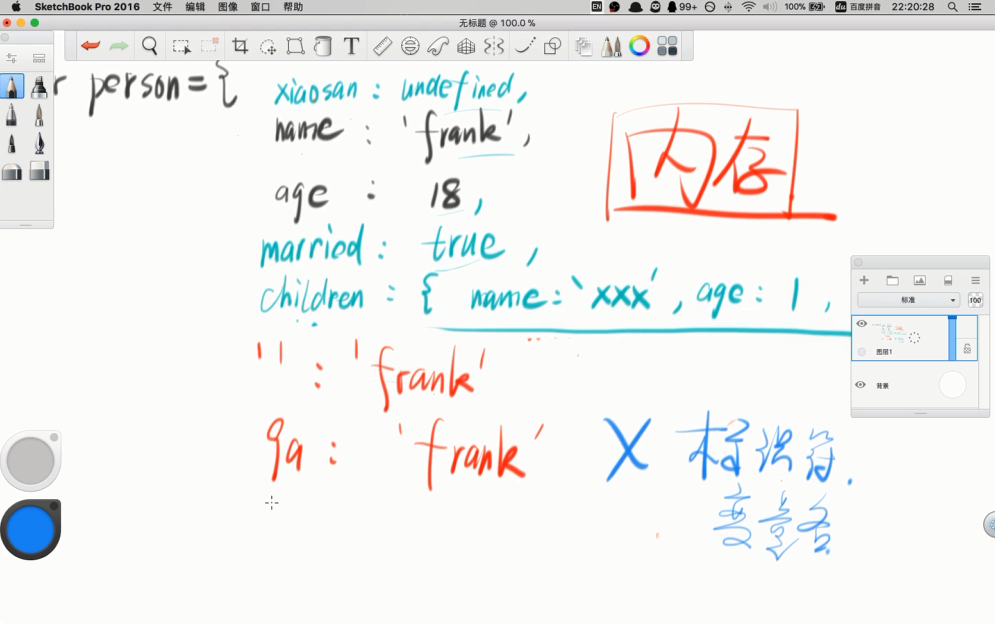 SketchBook Pro 2016 文件 编辑 图像 窗口 帮助 99+ 100% 百度拼音 22:20:28
无标题 @ 100.0 %
r person={
xiaosan : undefined,
name : 'frank',
age : 18,
married : true,
children : { name:'xxx', age: 1,
内存
'' : 'frank'
9a : 'frank' X 标识符.
变量名
标准 100
图层1
背景